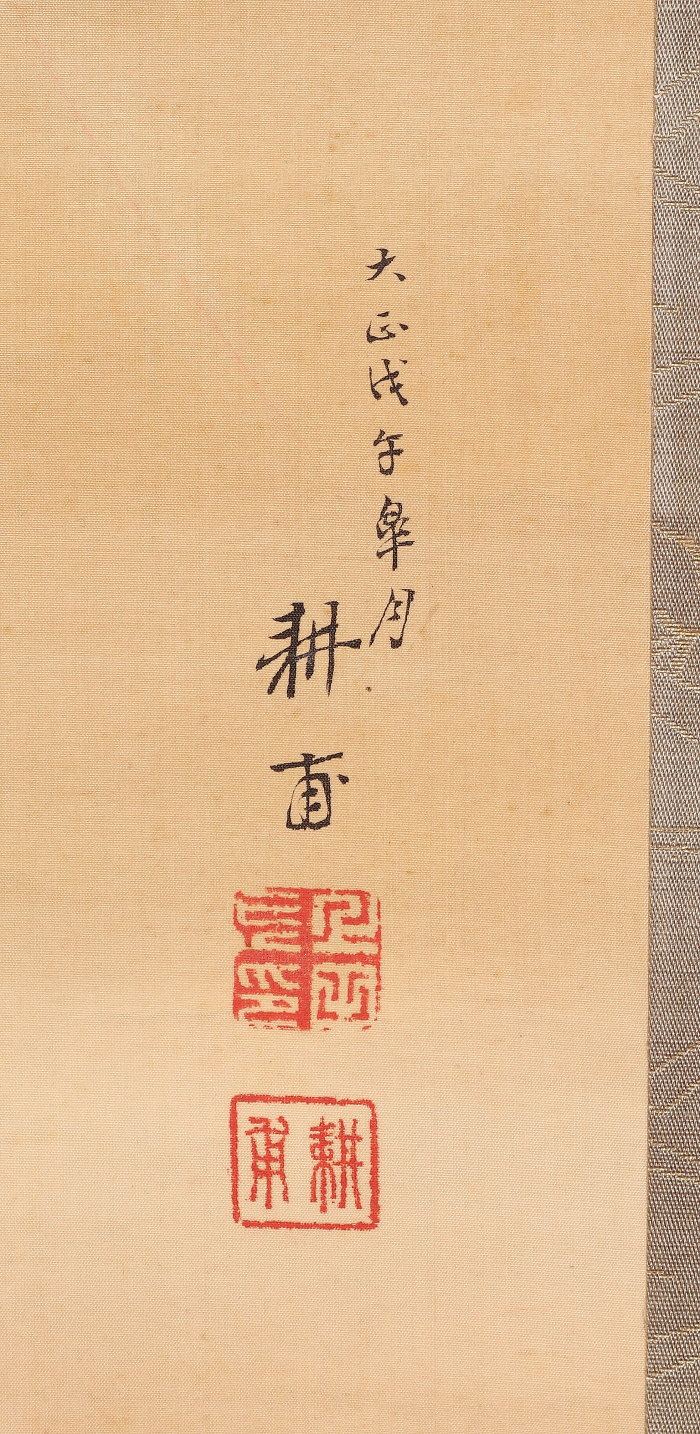 大正戊午皐月
耕甫
耕甫